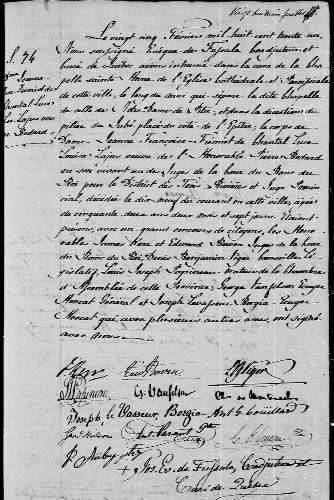 S. 74
Jeanne
Le vingt cinq Février mil huit cent trente un
Nous soussigné Evêque de Fussala Coadjuteur et
Curé de Québec avons inhumé dans la cave de la Cha-
pelle sainte Anne de l'Eglise Cathédrale et Paroissiale
de cette ville, le long du mur qui sépare la dite Chapelle
de celle de Notre Dame de Pitié, et dans la direction du
pilier du Jubé placé du côté de l'Epître, le corps de
Dame Jeanne Françoise Frémiot de Chantal Luce
Louise Lajus veuve de l'Honorable Pierre Bedard
en son vivant un des Juges de la Cour du Banc du
Roi pour le District des Trois Rivières et Juge Provin-
cial, décédée le dix neuf du courant en cette ville, agée
de cinquante deux ans deux mois et sept jours. Etaient
présens, avec un grand concours de citoyens, les Hono-
rables James Kerr et Edward Bowen Juges de la Cour
du Banc du Roi, Denis Benjamin Viger Conseiller Lé-
gislatif, Louis Joseph Papineau Orateur de la Chambre
d'Assemblée de cette Province, George Vanfelson Ecuyer
Avocat Général et Joseph Levasseur Borgia Ecuyer
Avocat que, avec plusieurs autres amis, ont signé
avec nous.
J. Kerr
Edw Bowen
D. B. Viger
L J Papineau
G. Vanfelson
Joseph Le Vasseur Borgia
Ant. Parant Ptre
+ Jos. Ev. de Fussala, Coadjuteur et
Curé de Québec